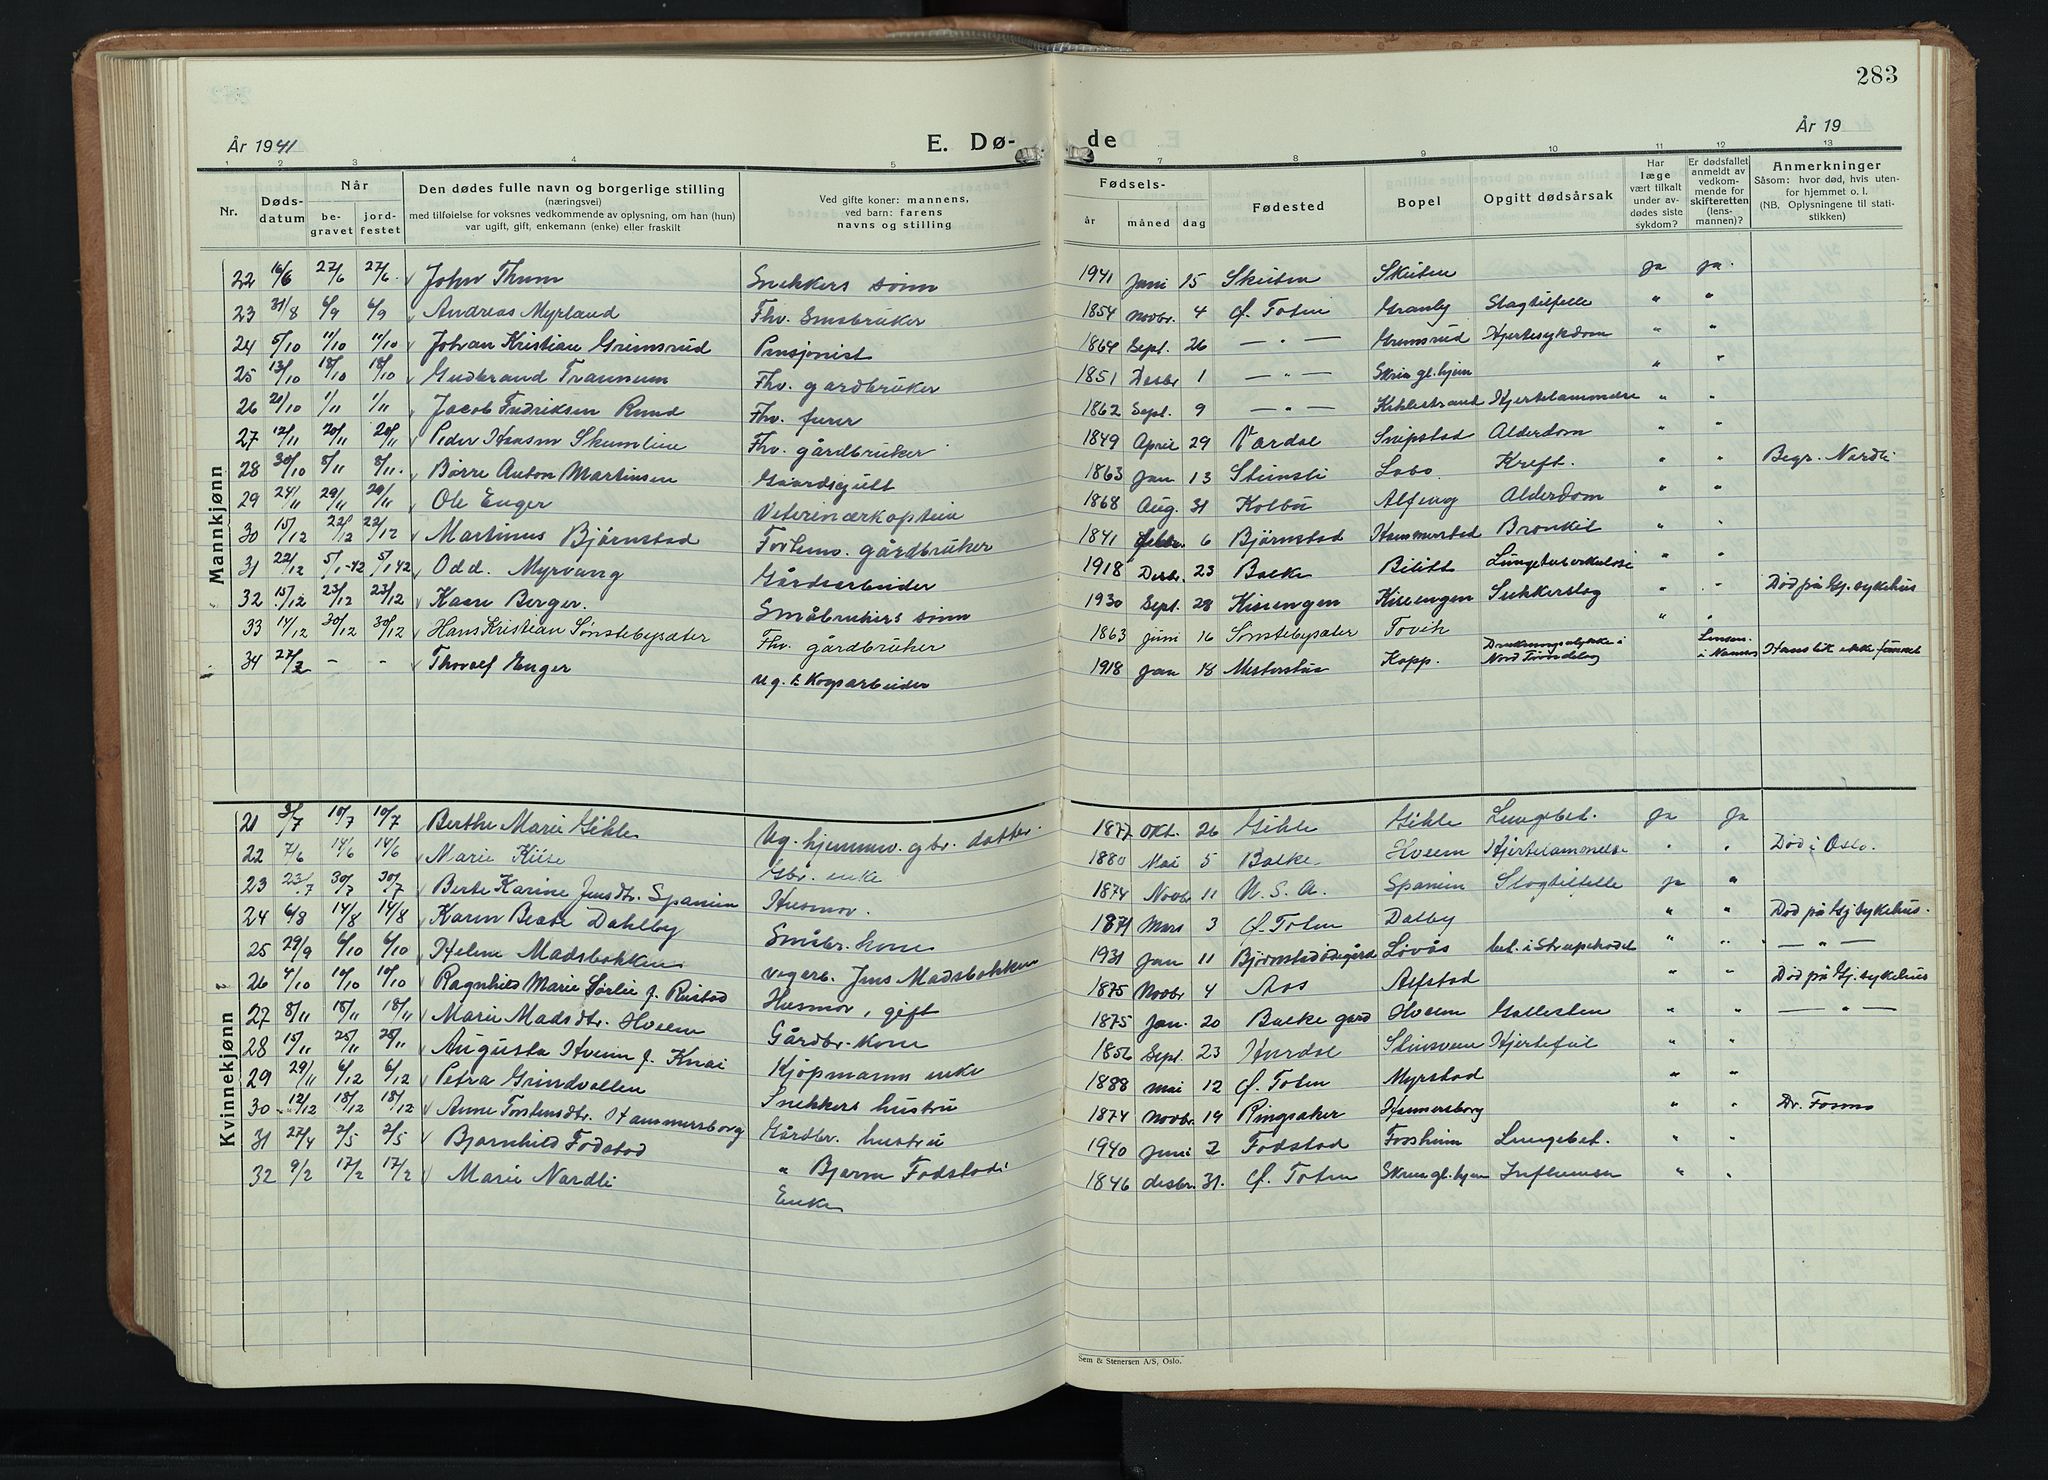 283
År 1941
E. Dø-
de
År 19
1 2 3 4 5 7 8 9 10 11 12 13
Nr.
Døds-
datum
Når
be-
gravet
jord-
festet
Den dødes fulle navn og borgerlige stilling
(næringsvei)
med tilføielse for voksnes vedkommende av oplysning, om han (hun)
var ugift, gift, enkemann (enke) eller fraskilt
Ved gifte koner: mannens,
ved barn: farens
navns og stilling
Fødsels-
år måned dag
Fødested
Bopel
Opgitt dødsårsak
Har
læge
vært tilkalt
under av-
dødes siste
sykdom?
Er dødsfallet
anmeldt av
vedkom-
mende for
skifteretten
(lens-
mannen)?
Anmerkninger
Såsom: hvor død, hvis uten-
for hjemmet o. l.
(NB. Oplysningene til stati-
stikken)
Mannkjønn
22 16/6 27/6 27/6 John Thum Snekkers sønn 1941 Juni 15 Skuten Skuten ja ja.
23 31/8 6/9 6/9 Andreas Myrland Fhv. Småbruker 1854 Novbr. 4 Ø. Toten Granby Slagtilfelle " "
24 5/10 11/10 11/10 Johan Kristian Grimsrud Pensjonist 1864 Sept. 26 — " — Grimsrud Hjertesykdom " "
25 13/10 18/10 18/10 Gudbrand Trannum Fhv. gardbruker 1851 Desbr 1 — " — Skrin gl.hjem " "
26 20/10 1/11 1/11 Jacob Fredriksen Rund Fhv. furer 1862 Sept. 9 — " — Kihlestrand Hjertelammelse " "
27 12/11 20/11 20/11 Peder Hansen Skumlien Fhv. gårdbruker 1849 April 29 Vardal Snipstad Alderdom " "
28 30/10 8/11 8/11 Børre Anton Martinsen Gaardsgutt 1863 Jan 13 Steinsli Labo Kreft. " " Begr. Nordli
29 24/11 29/11 29/11 Ole Enger Veterinærkaptein 1868 Aug. 31 Kolbu Alfeng Alderdom " "
30 15/12 22/12 22/12 Martinus Bjørnstad Forhenv. gårdbruker 1841 Febr. 6 Bjørnstad Hammerstad Bronkit " "
31 22/12 5/1-42 5/1 42 Odd. Myrvang Gårdsarbeider 1918 Desbr. 23 Balke Bilitt Lungetuberkulose " "
32 15/12 23/12 23/12 Kaare Berger. Småbrukers sønn 1930 Sept. 28 Kisengen Kisengen Sukkerslag " " Død på Gj. sykehus
33 14/12 30/12 30/12 Hans Kristian Sønstebysæter Fhv. gårdbruker 1863 Juni 16 Sønstebysæter Tovik " "
34 27/2 - - Thoralf Enger ug. Skogsarbeider 1918 Jan 18 Mesterstua Kapp. Drukningsulykke i Nord Trøndelag Lensm. i Namsos Hans lik ikke funnet
Kvinnekjønn
21 3/7 10/7 10/7 Berthe Marie Gihle Ug. hjemmv. gbr. datter. 1877 Okt. 26 Gihle Gihle Lungebet. Ja Ja
22 7/6 14/6 14/6 Marie Kiise Gbr. enke 1880 Mai 5 Balke Hveem Hjertelammelse " " Død i Oslo.
23 23/7 30/7 30/7 Berte Karine Jensdtr. Spanien Husmor. 1874 Novbr 11 U. S. A. Spanien Slagtilfelle ja "
24 6/8 14/8 14/8 Karin Beate Dahlby Småbr. kone 1871 Mars 3 Ø. Toten Dalby " " Død på Gj sykehus.
25 29/9 6/10 6/10 Helene Madsbakken vegarb. Jens Madsbakken 1931 Jan 11 Bjørnstadødegård Løvås bet. i Strupehodet " " — " —
26 4/10 10/10 10/10 Ragnhild Marie Sørlie f. Rustad Husmor, gift 1875 Novbr 4 Aas Alfstad " " Død på Gj. sykehus
27 8/11 18/11 18/11 Marie Madsdtr. Hveem Gårdbr. kone 1875 Jan. 20 Balke gård Hveem Gallesten " " — " —
28 15/11 25/11 25/11 Augusta Hveem f. Knai Kjøpmanns enke 1856 Sept. 23 Hurdal Stensveen Hjertefeil " "
29 29/11 6/12 6/12 Petra Grindvollen Snekkers hustru 1888 Mai 12 Ø. Toten Myrstad " "
30 12/12 18/12 18/12 Anne Torstensdtr. Hammersborg Gårdbr. hustru 1874 Novbr. 19 Ringsaker Hammersborg " " Dr. Fosmo
31 27/4 2/5 2/5 Bjørnhild Fodstad " Bjarne Fodstad 1940 Juni 2 Fodstad Fossheim Lungebet. " "
32 9/2 17/2 17/2 Marie Nordli Enke 1846 desbr. 31. Ø. Toten Skrin gl.hjem Influensa " "
Sem & Stenersen A/S, Oslo.